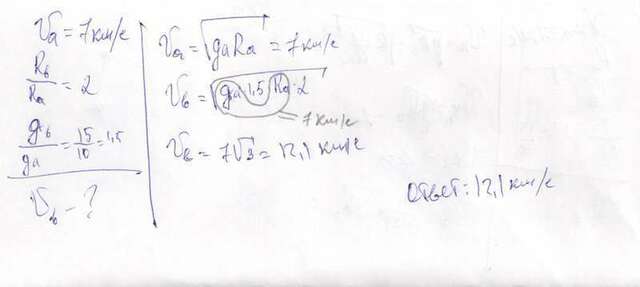 Va = 7 км/с
Rв/Rа = 2
gв/gа = 15/10 = 1,5
Vв - ?
Va = √gaRa = 7 км/с
Vв = √ga 1,5 Ra 2
= 7 км/с
Vв = 7√3 = 12,1 км/с
ответ: 12,1 км/с